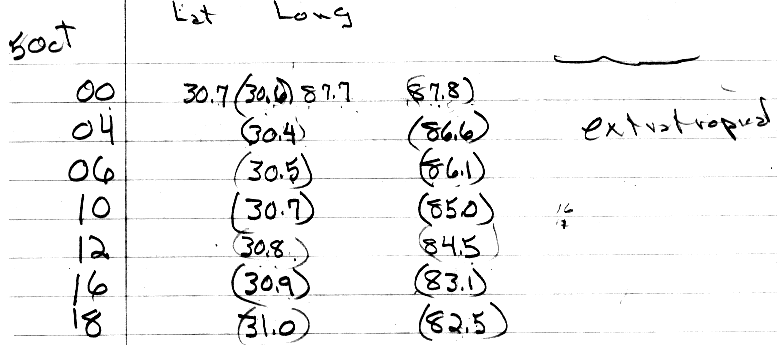 Lat Long
5 Oct
00 30.7 (30.6) 87.7 (87.8)
04 (30.4) (86.6) extratropical
06 (30.5) (86.1)
10 (30.7) (85.0)
12 (30.8) (84.5)
16 (30.9) (83.1)
18 (31.0) (82.5)